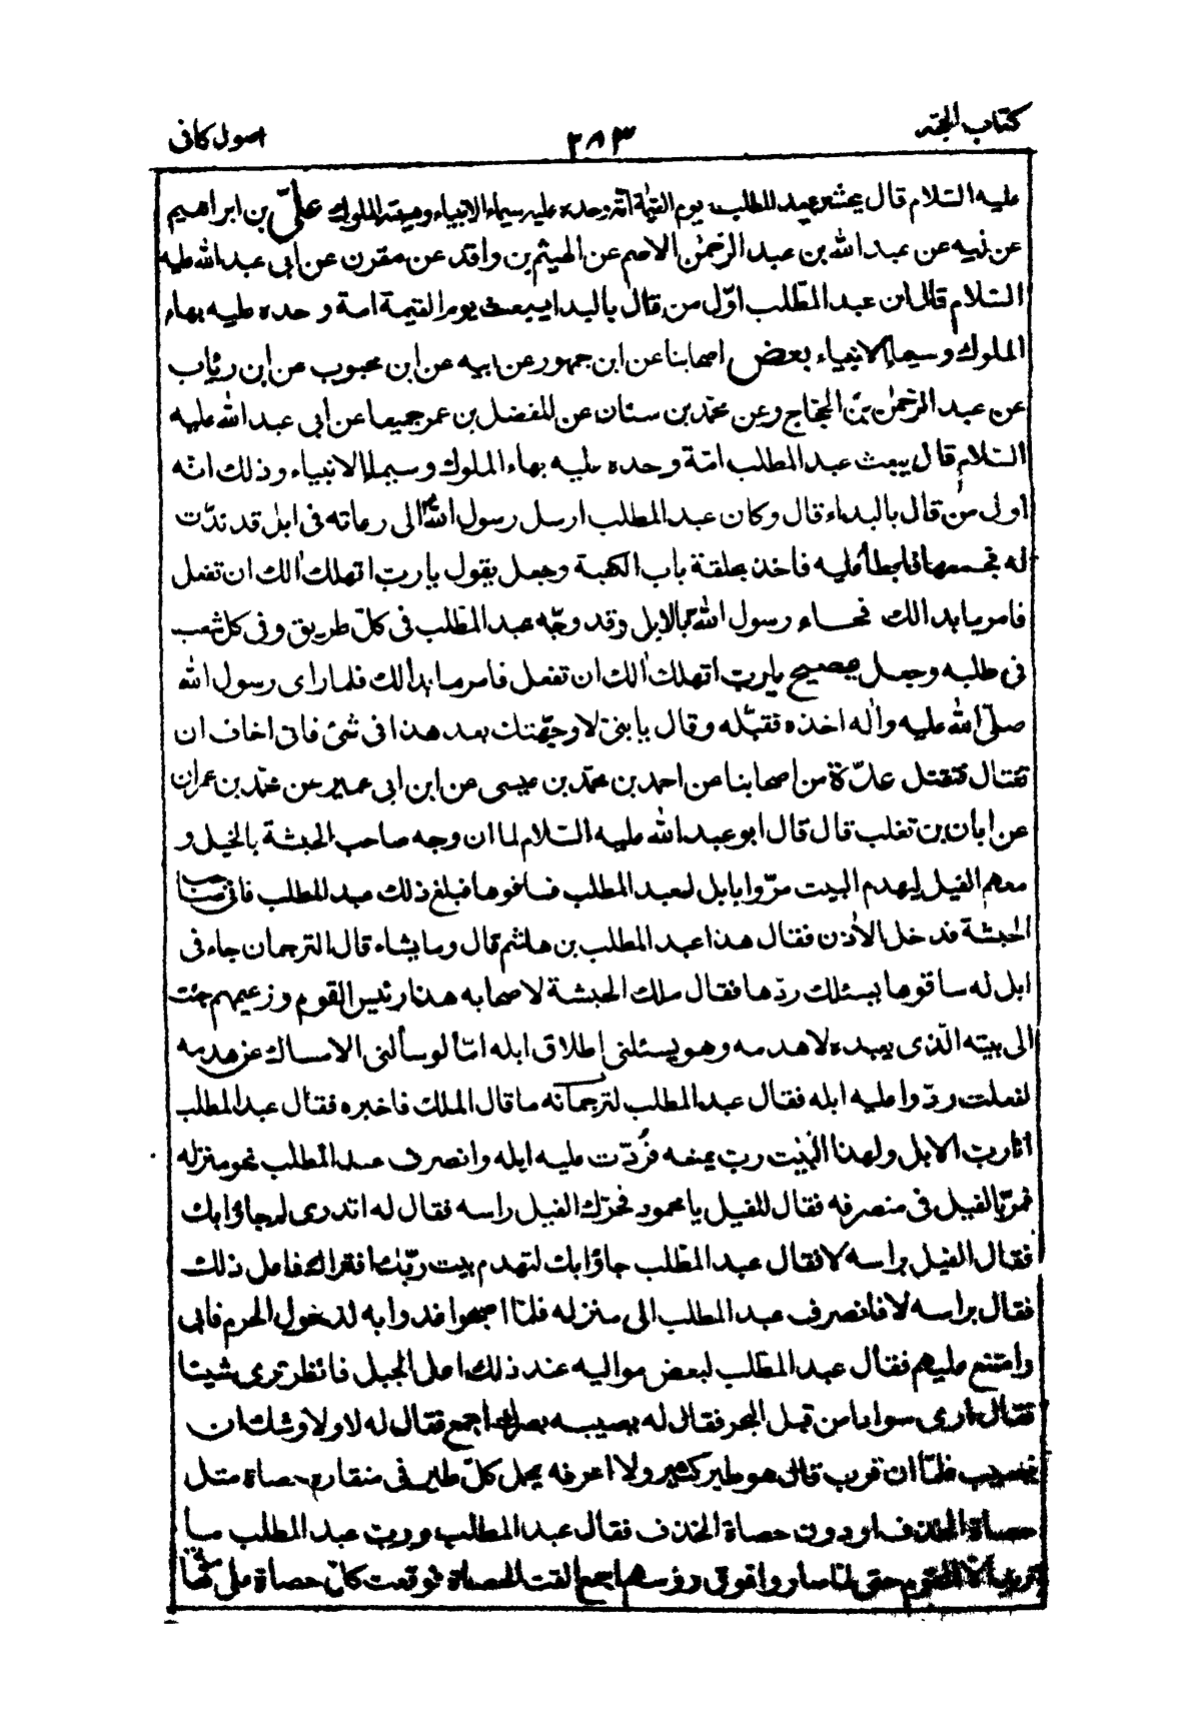 كتاب الحجة ٢٨٣ اصول كافى
عليه السّلام قال يحشر عبد المطلب يوم القيمة امّة وحده عليه سيماء الانبياء وهيبة الملوك علىّ بن ابراهيم
عن ابيه عن عبد الله بن عبد الرّحمٰن الاصم عن الهيثم بن واقد عن مقرن عن ابى عبد الله عليه
السّلام قال ان عبد المطّلب اوّل من قال بالبدا يبعث يوم القيمة امة وحده عليه بهاء
الملوك وسيماء الانبياء بعض اصحابنا عن ابن جمهور عن ابيه عن ابن محبوب عن ابن رئاب
عن عبد الرّحمٰن بن الحجّاج وعن محمّد بن سنان عن المفضل بن عمر جميعا عن ابى عبد الله عليه
السّلام قال يبعث عبد المطلب امّة وحده عليه بهاء الملوك وسيماء الانبياء وذلك انّه
اول من قال بالبداء قال وكان عبد المطلب ارسل رسول الله الى رعاته فى ابل قد ندّت
له فجمعها فابطأ عليه فاخذ بحلقة باب الكعبة وجعل يقول يا ربّ اتهلك الك ان تفعل
فامر ما بدا لك فجاء رسول الله بالابل وقد وجّه عبد المطّلب فى كلّ طريق وفى كل شعب
فى طلبه وجعل يصيح يا ربّ اتهلك الك ان تفعل فامر ما بدا لك فلما راى رسول الله
صلّى الله عليه واٰله اخذه فقبّله وقال يا بنىّ لا وجّهتك بعد هذا فى شئ فانى اخاف ان
تغتال فتقتل عدّة من اصحابنا عن احمد بن محمّد بن عيسى عن ابن ابى عمير عن محمّد بن عمران
عن ابان بن تغلب قال قال ابو عبد الله عليه السّلام لما ان وجه صاحب الحبشة بالخيل و
معهم الفيل ليهدم البيت مرّوا بابل لعبد المطلب فساقوها فبلغ ذلك عبد المطلب فاتى صاحب
الحبشة فدخل الاٰذن فقال هذا عبد المطلب بن هاشم قال وما يشاء قال الترجمان جاء فى
ابل له ساقوها يسئلك ردّها فقال ملك الحبشة لاصحابه هذا رئيس القوم وزعيمهم جئت
الى بيته الّذى يعبده لاهدمه وهو يسئلنى اطلاق ابله امّا لو سألنى الامساك عن هدمه
لفعلت ردّوا عليه ابله فقال عبد المطلب لترجمانه ما قال الملك فاخبره فقال عبد المطلب
انا ربّ الابل ولهذا البيت ربّ يمنعه فرُدّت عليه ابله وانصرف عبد المطلب نحو منزله
فمرّ بالفيل فى منصرفه فقال للفيل يا محمود فحرّك الفيل راسه فقال له اتدرى لم جاؤا بك
فقال الفيل براسه لا فقال عبد المطّلب جاؤا بك لتهدم بيت ربّك افتراك فاعل ذلك
فقال براسه لا فانصرف عبد المطلب الى منزله فلمّا اصبحوا غدوا به لدخول الحرم فابى
وامتنع عليهم فقال عبد المطّلب لبعض مواليه عند ذلك اعل الجبل فانظر ترى شيئا
فقال ارى سوادا من قبل البحر فقال له يصيبه بصرك اجمع فقال له لا ولاوشك ان
يصيب فلمّا ان قرب قال هو طير كثير ولا اعرفه يحمل كلّ طير فى منقاره حصاة مثل
حصاة الخذف او دون حصاة الخذف فقال عبد المطلب وربّ عبد المطلب ما
تريد الا القوم حتى لمّا صاروا فوق رؤسهم اجمع القت الحصاة فوقعت كلّ حصاة على